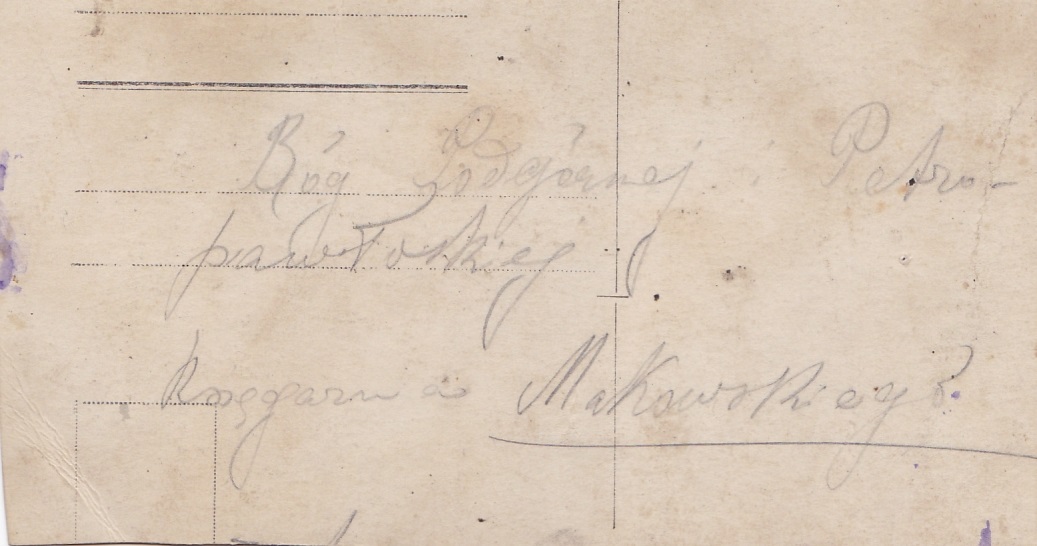 Róg Podgórnej i Petro-
pawłoskiej
Księgarnia Makowskiego